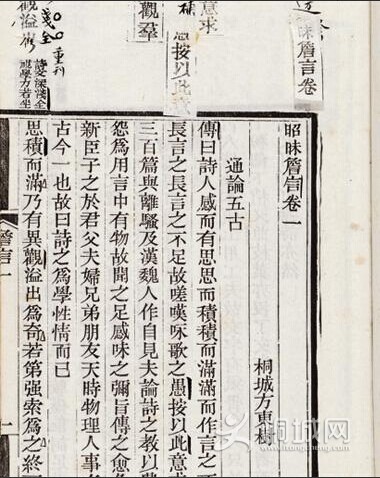 昧詹言卷
意求
愚按以此意
觀羣
重刊
觀溢
昭昧詹言卷一
桐城方東樹
通論五古
傳曰詩人感而有思思而積積而滿滿而作言之不
長言之長言之不足故嗟嘆咏歌之愚按以此意求
三百篇與離騷及漢魏人作自見夫論詩之教以興
怨為用言中有物故聞之足感味之彌旨傳之愈
新臣子之於君父夫婦兄弟朋友天時物理人事
古今一也故曰詩之為學性情而已
思積而滿乃有異觀溢出為奇若第强索為之終
詹言一
一
桐城网